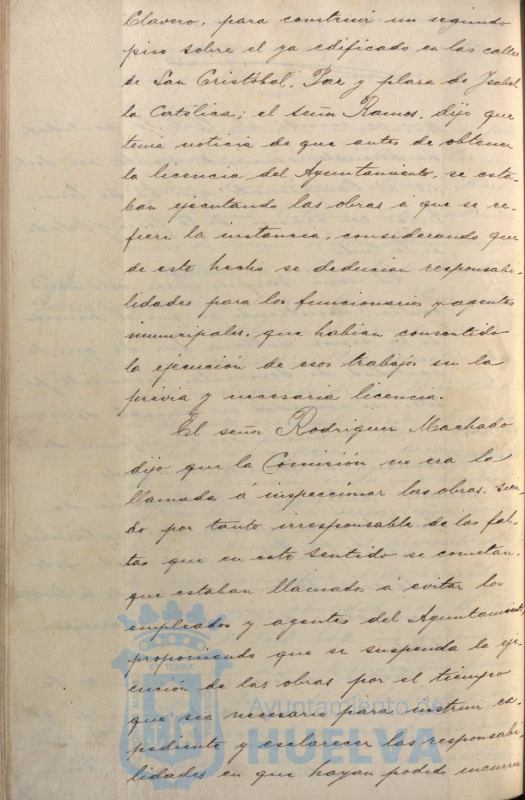 Clavero, para construir un segundo
piso sobre el ya edificado en las calles
de San Cristóbal, Paz y plaza de Isabel
la Católica; el señor Ramos, dijo que
tenia noticia de que antes de obtener
la licencia del Ayuntamiento, se esta-
ban ejecutando las obras á que se re-
fiere la instancia, considerando que
de este hecho se deducian responsabi-
lidades para los funcionarios y agentes
municipales, que habian consentido
la ejecución de esos trabajos sin la
previa y necesaria licencia.
El señor Rodriguez Machado
dijo que la Comisión no era la
llamada á inspeccionar las obras, sien-
do por tanto irresponsable de las fal-
tas que en este sentido se cometan,
que estaban llamados á evitar los
empleados y agentes del Ayuntamiento,
proponiendo que se suspenda la eje-
cución de las obras por el tiempo
que sea necesario para instruir ex-
pediente y esclarecer las responsabi-
lidades en que hayan podido incurrir
Ayuntamiento de
HUELVA